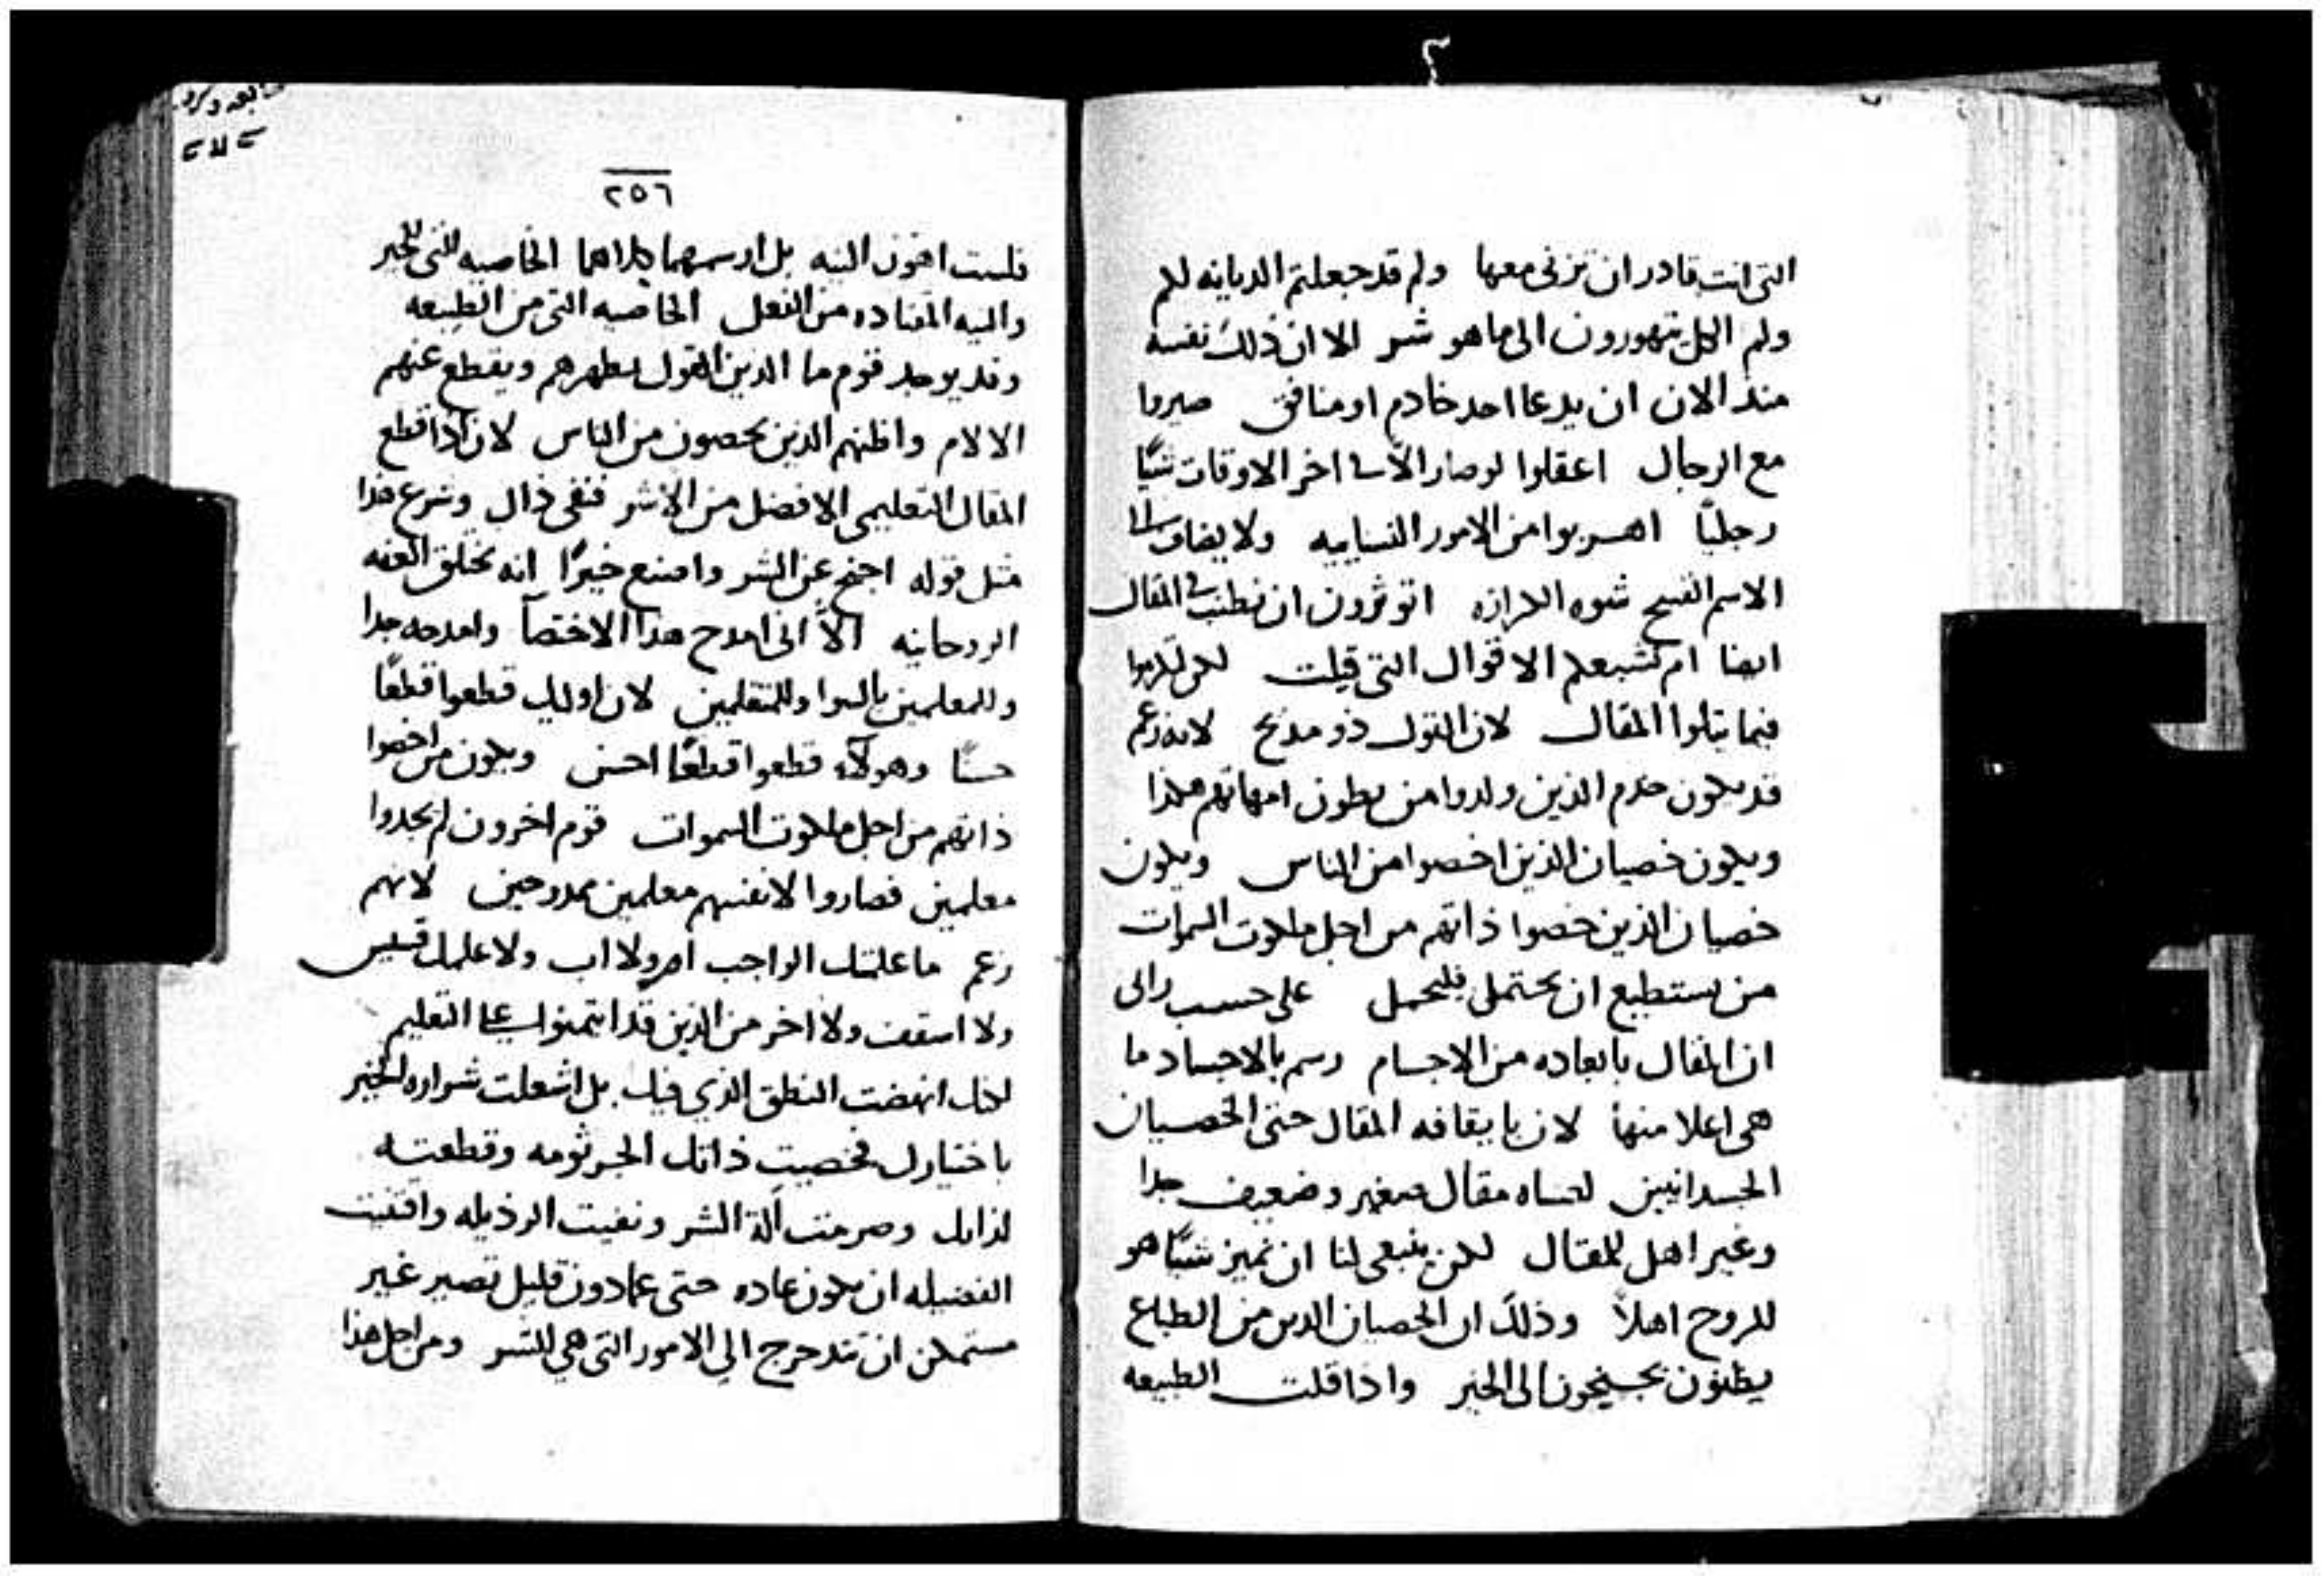 التى انت قادر ان تزنى معها ولم قد جعلتم الديانه لكم
ولم الكل تتهورون الى ما هو شر الا ان ذلك نفسه
منذ الان ان يدعا احد خادم او منافق صيروا
مع الرجال اعقلوا لو صار اخر الاوقات شيًا
رجليًا اهربوا من الامور النساييه ولا يضاف
الاسم القبيح شوه الكرازه اتوثرون ان نطنب فى المقال
ايضا ام تشبعكم الاقوال التى قيلت لكن
فيما يتلوا المقال لان القول ذو مديح لانه زعم
قد يكون خدم الذين ولدوا من بطون امهاتهم هكذا
ويكون خصيان الذين اخصوا من الناس ويكون
خصيان الذين خصوا ذاتهم من اجل ملكوت السموات
من يستطيع ان يحتمل فليحتمل على حسب رالى
ان المقال بابعاده من الاجسام رسم بالاجساد ما
هى اعلا منها لان بايقافه المقال حتى الخصيان
الجسدانيين لعساه مقال صغير وضعيف جدا
وغير اهل للمقال لكن ينبغى لنا ان نميز شيًا هو
للروح اهلاً وذلك ان الخصيان الدين من الطباع
يظنون يجنحون الى الخير واذا قلت الطبيعه
٢٥٦
فلست اهون النيه بل ارسمهما كلاهما الخاصيه التى للخير
والنيه المقتاده من الفعل الخاصيه التى من الطبيعه
وقد يوجد قوم ما الدين القول يطهرهم ويقطع عنهم
الالام واظنهم الدين يخصون من الناس لان اذا قطع
المقال التعليمى الافضل من الاشر فنفى ذاك وشرع هذا
مثل قوله اجنح عن الشر واصنع خيرًا انه يخلق العفه
الروحانيه الا انى امدح هذا الاختصآ وامدحه جدا
وللمعلمين بالسوا وللمتعلمين لان اوليك قطعوا قطعًا
حسنًا وهولآء قطعوا قطعًا احسن ويكون من اخصوا
ذاتهم من اجل ملكوت السموات قوم اخرون لم يجدوا
معلمين فصاروا لانفسهم معلمين ممدوحين لانهم
زعم ما علمتك الواجب ام ولا اب ولا علمك قسيس
ولا اسقف ولا اخر من الذين قد ايتمنوا على التعليم
لكنك انهضت النطق الذي فيك بل اشعلت شراره الخير
باختيارك فخصيت ذاتك الجرثومه وقطعته
لذاتك وصرمت آلة الشر ونفيت الرذيله واقتنيت
الفضيله ان يكون عاده حتى عما دون قليل تصير غير
مستمكن ان تتدحرج الى الامور التى هى للشر ومن اجل هذا